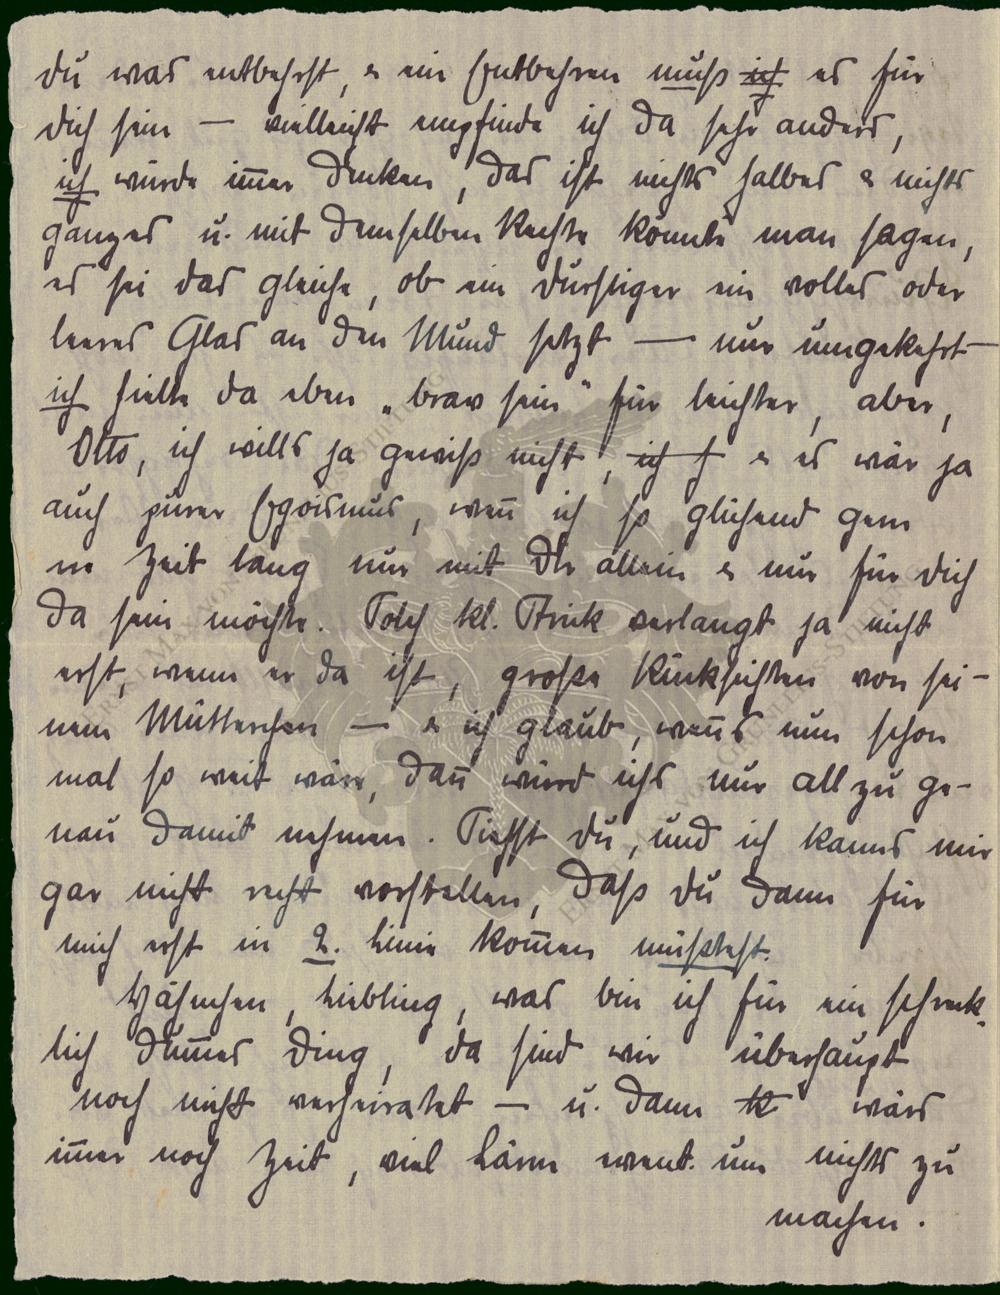 du was entbehrst, & ein Entbehren muß ich es für
dich sein — vielleicht empfinde ich da sehr anders,
ich würde im̅er denken, das ist nichts halbes & nichts
ganzes u. mit demselben Rechte könnte man sagen,
es sei das gleiche, ob ein durstiger ein volles oder
leeres Glas an den Mund setzt — nur umgekehrt —
ich hielte da eben „brav sein" für leichter, aber,
Otto, ich wills ja gewiß nicht, ich f & es wär ja
auch purer Egoismus, wen̅ ich so glühend gern
ne Zeit lang nur mit dir allein & nur für dich
da sein möchte. Solch kl. Strick verlangt ja nicht
erst, wenn er da ist, große Rücksichten von sei-
nem Mütterchen — & ich glaub, wen̅s nun schon
mal so weit wäre, dan̅ würd ichs nur all zu ge-
nau damit nehmen. Siehst du, und ich kanns mir
gar nicht recht vorstellen, daß du dann für
mich erst in 2. Linie kom̅en müßtest.
Hähnchen, Liebling, was bin ich für ein schreck-
lich dum̅es Ding, da sind wir überhaupt
noch nicht verheiratet — u. dann k wärs
im̅er noch Zeit, viel Lärm event. um nichts zu
machen.